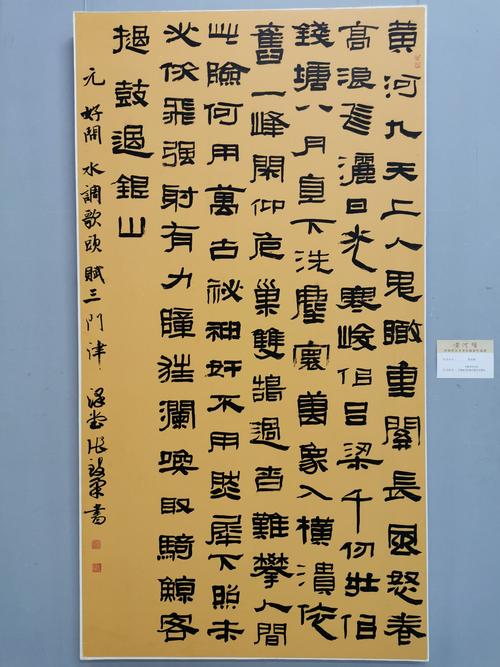 黄河九天上人鬼瞰重關長風怒卷
高浪飛灑日光寒峻佀吕梁千仞壮佀
錢塘八月直下洗塵寰萬象入横潰依
舊一峰閑仰危巢雙鵠過杳難攀人間
此險何用萬古祕神奸不用然犀下照未
必佽飛强射有力障狂瀾唤取騎鯨客
撾鼓過銀山
元好問水調歌頭賦三門津 書
黄河颂